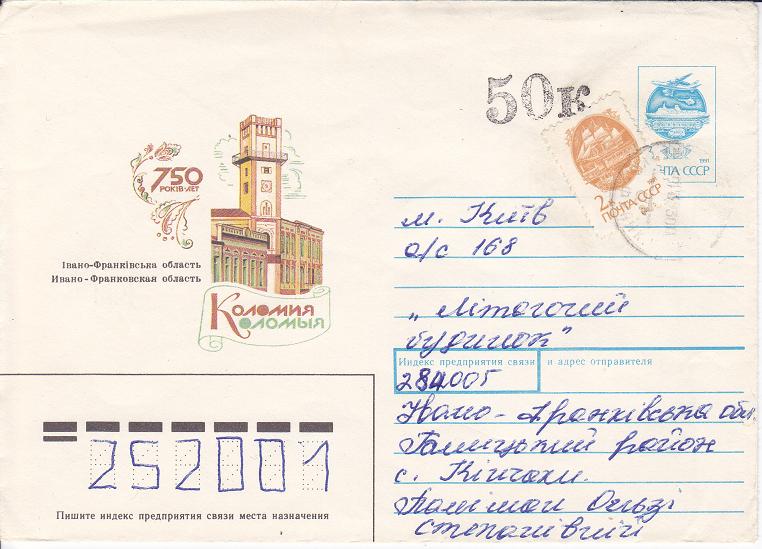 50к
1991
ПОЧТА СССР
2к
ПОЧТА СССР
750
РОКІВ·ЛЕТ
Івано-Франківська область
Ивано-Франковская область
Коломия
Коломыя
м. Київ
о/с 168
"
будинок"
Индекс предприятия связи и адрес отправителя
284005
Івано-Франківська обл.
Галицький район
с.
Ользі
Степанівній
252001
Пишите индекс предприятия связи места назначения